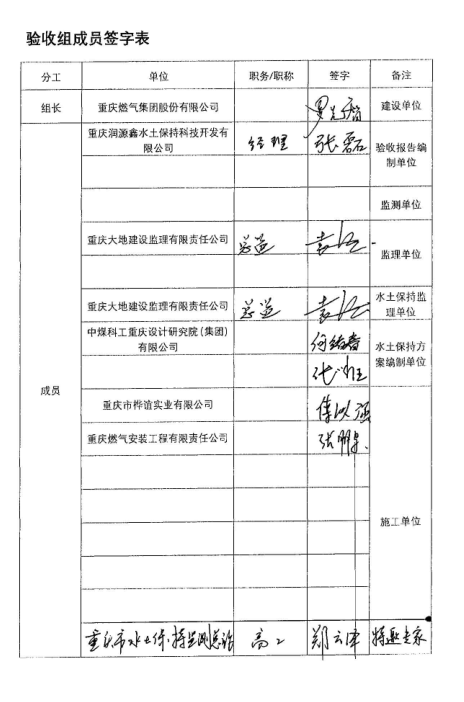 验收组成员签字表
分工 单位 职务/职称 签字 备注
组长 重庆燃气集团股份有限公司 建设单位
重庆润源鑫水土保持科技开发有
限公司 经理 张磊 验收报告编
制单位
监测单位
重庆大地建设监理有限责任公司 总监 监理单位
重庆大地建设监理有限责任公司 总监 水土保持监
理单位
中煤科工重庆设计研究院(集团)
有限公司 水土保持方
案编制单位
成员
重庆市桦谊实业有限公司
重庆燃气安装工程有限责任公司
施工单位
重庆市水土保持监测总站 高工 郑云泽 特邀专家